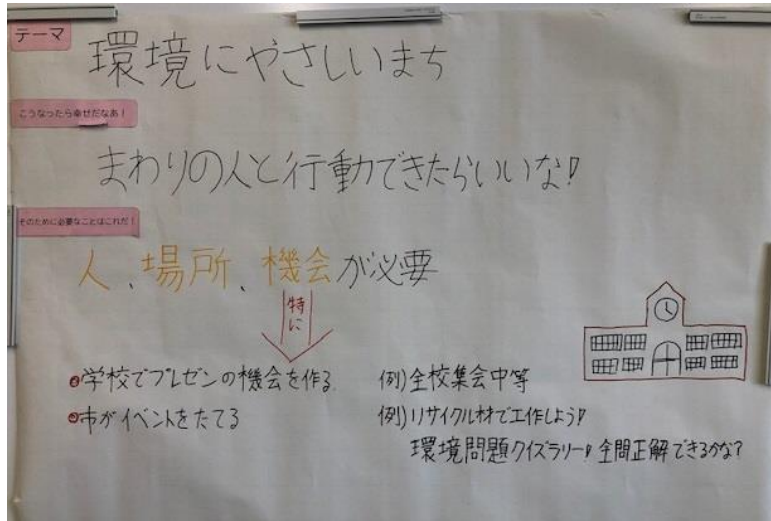 テーマ
環境にやさしいまち
こうなったら幸せだなあ！
まわりの人と行動できたらいいな！
そのために必要なことはこれだ！
人、場所、機会が必要
特に
●学校でプレゼンの機会を作る 例)全校集会中等
●市がイベントをたてる 例)リサイクル材で工作しよう！
環境問題クイズラリー！全問正解できるかな？